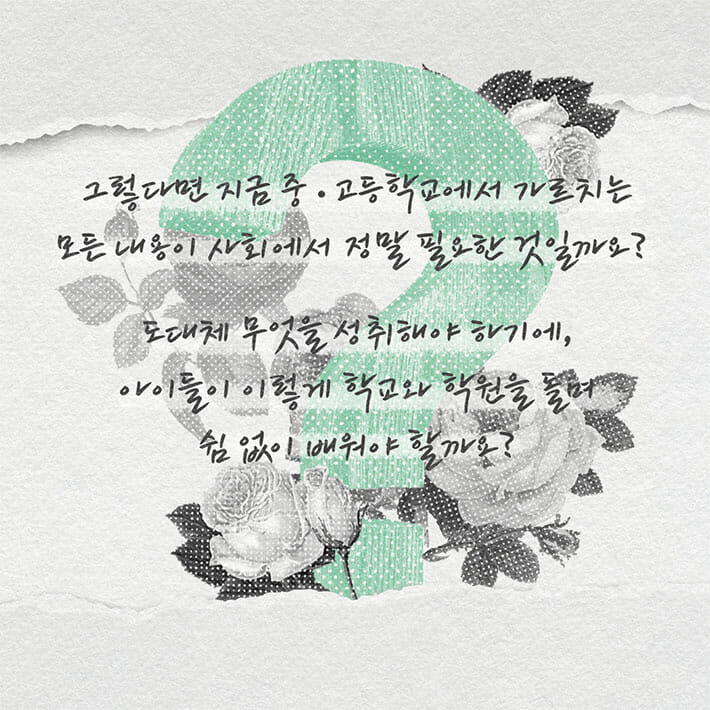 그렇다면 지금 중 · 고등학교에서 가르치는
모든 내용이 사회에서 정말 필요한 것일까요?
도대체 무엇을 성취해야 하기에,
아이들이 이렇게 학교와 학원을 돌며
쉼 없이 배워야 할까요?